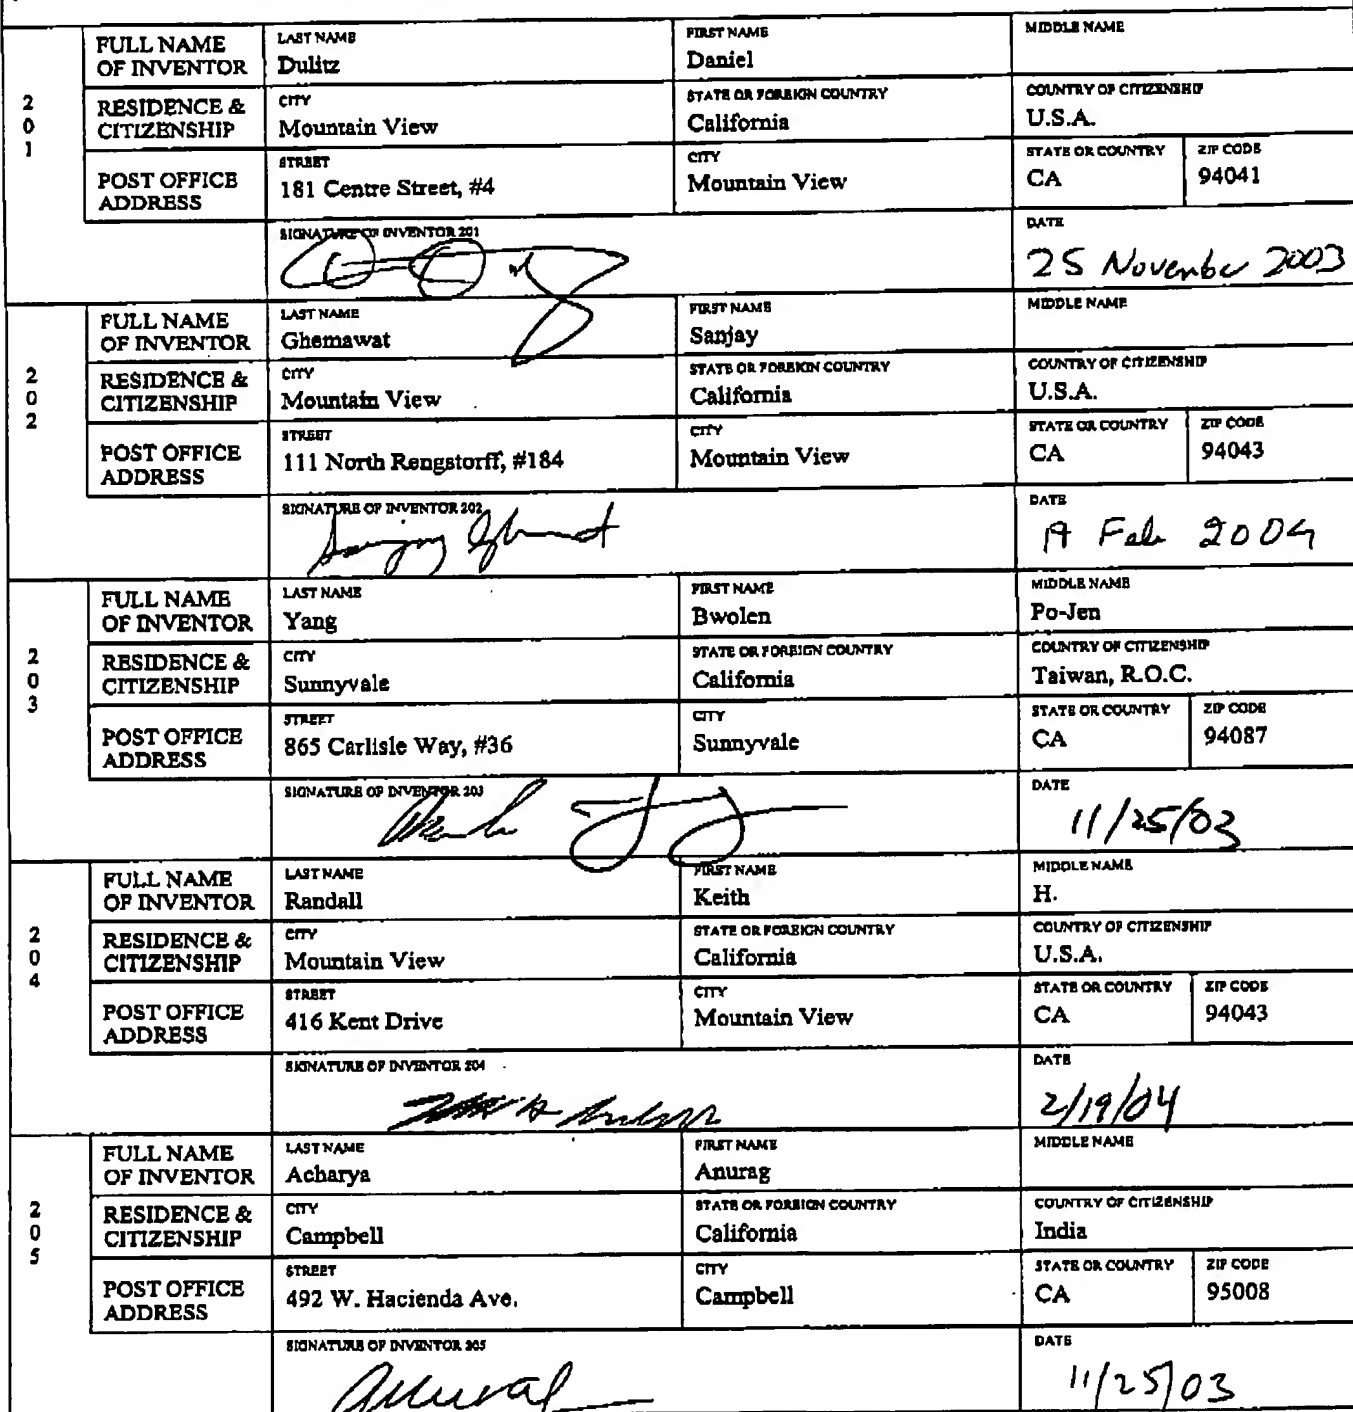 FULL NAME OF INVENTOR
LAST NAME
Dulitz
FIRST NAME
Daniel
MIDDLE NAME
201
RESIDENCE & CITIZENSHIP
CITY
Mountain View
STATE OR FOREIGN COUNTRY
California
COUNTRY OF CITIZENSHIP
U.S.A.
POST OFFICE ADDRESS
STREET
181 Centre Street, #4
CITY
Mountain View
STATE OR COUNTRY
CA
ZIP CODE
94041
SIGNATURE OF INVENTOR 201
DATE
25 November 2003
FULL NAME OF INVENTOR
LAST NAME
Ghemawat
FIRST NAME
Sanjay
MIDDLE NAME
202
RESIDENCE & CITIZENSHIP
CITY
Mountain View
STATE OR FOREIGN COUNTRY
California
COUNTRY OF CITIZENSHIP
U.S.A.
POST OFFICE ADDRESS
STREET
111 North Rengstorff, #184
CITY
Mountain View
STATE OR COUNTRY
CA
ZIP CODE
94043
SIGNATURE OF INVENTOR 202
Sanjay Ghemawat
DATE
Feb 2004
FULL NAME OF INVENTOR
LAST NAME
Yang
FIRST NAME
Bwolen
MIDDLE NAME
Po-Jen
203
RESIDENCE & CITIZENSHIP
CITY
Sunnyvale
STATE OR FOREIGN COUNTRY
California
COUNTRY OF CITIZENSHIP
Taiwan, R.O.C.
POST OFFICE ADDRESS
STREET
865 Carlisle Way, #36
CITY
Sunnyvale
STATE OR COUNTRY
CA
ZIP CODE
94087
SIGNATURE OF INVENTOR 203
DATE
11/25/03
FULL NAME OF INVENTOR
LAST NAME
Randall
FIRST NAME
Keith
MIDDLE NAME
H.
204
RESIDENCE & CITIZENSHIP
CITY
Mountain View
STATE OR FOREIGN COUNTRY
California
COUNTRY OF CITIZENSHIP
U.S.A.
POST OFFICE ADDRESS
STREET
416 Kent Drive
CITY
Mountain View
STATE OR COUNTRY
CA
ZIP CODE
94043
SIGNATURE OF INVENTOR 204
DATE
2/19/04
FULL NAME OF INVENTOR
LAST NAME
Acharya
FIRST NAME
Anurag
MIDDLE NAME
205
RESIDENCE & CITIZENSHIP
CITY
Campbell
STATE OR FOREIGN COUNTRY
California
COUNTRY OF CITIZENSHIP
India
POST OFFICE ADDRESS
STREET
492 W. Hacienda Ave.
CITY
Campbell
STATE OR COUNTRY
CA
ZIP CODE
95008
SIGNATURE OF INVENTOR 205
DATE
11/25/03